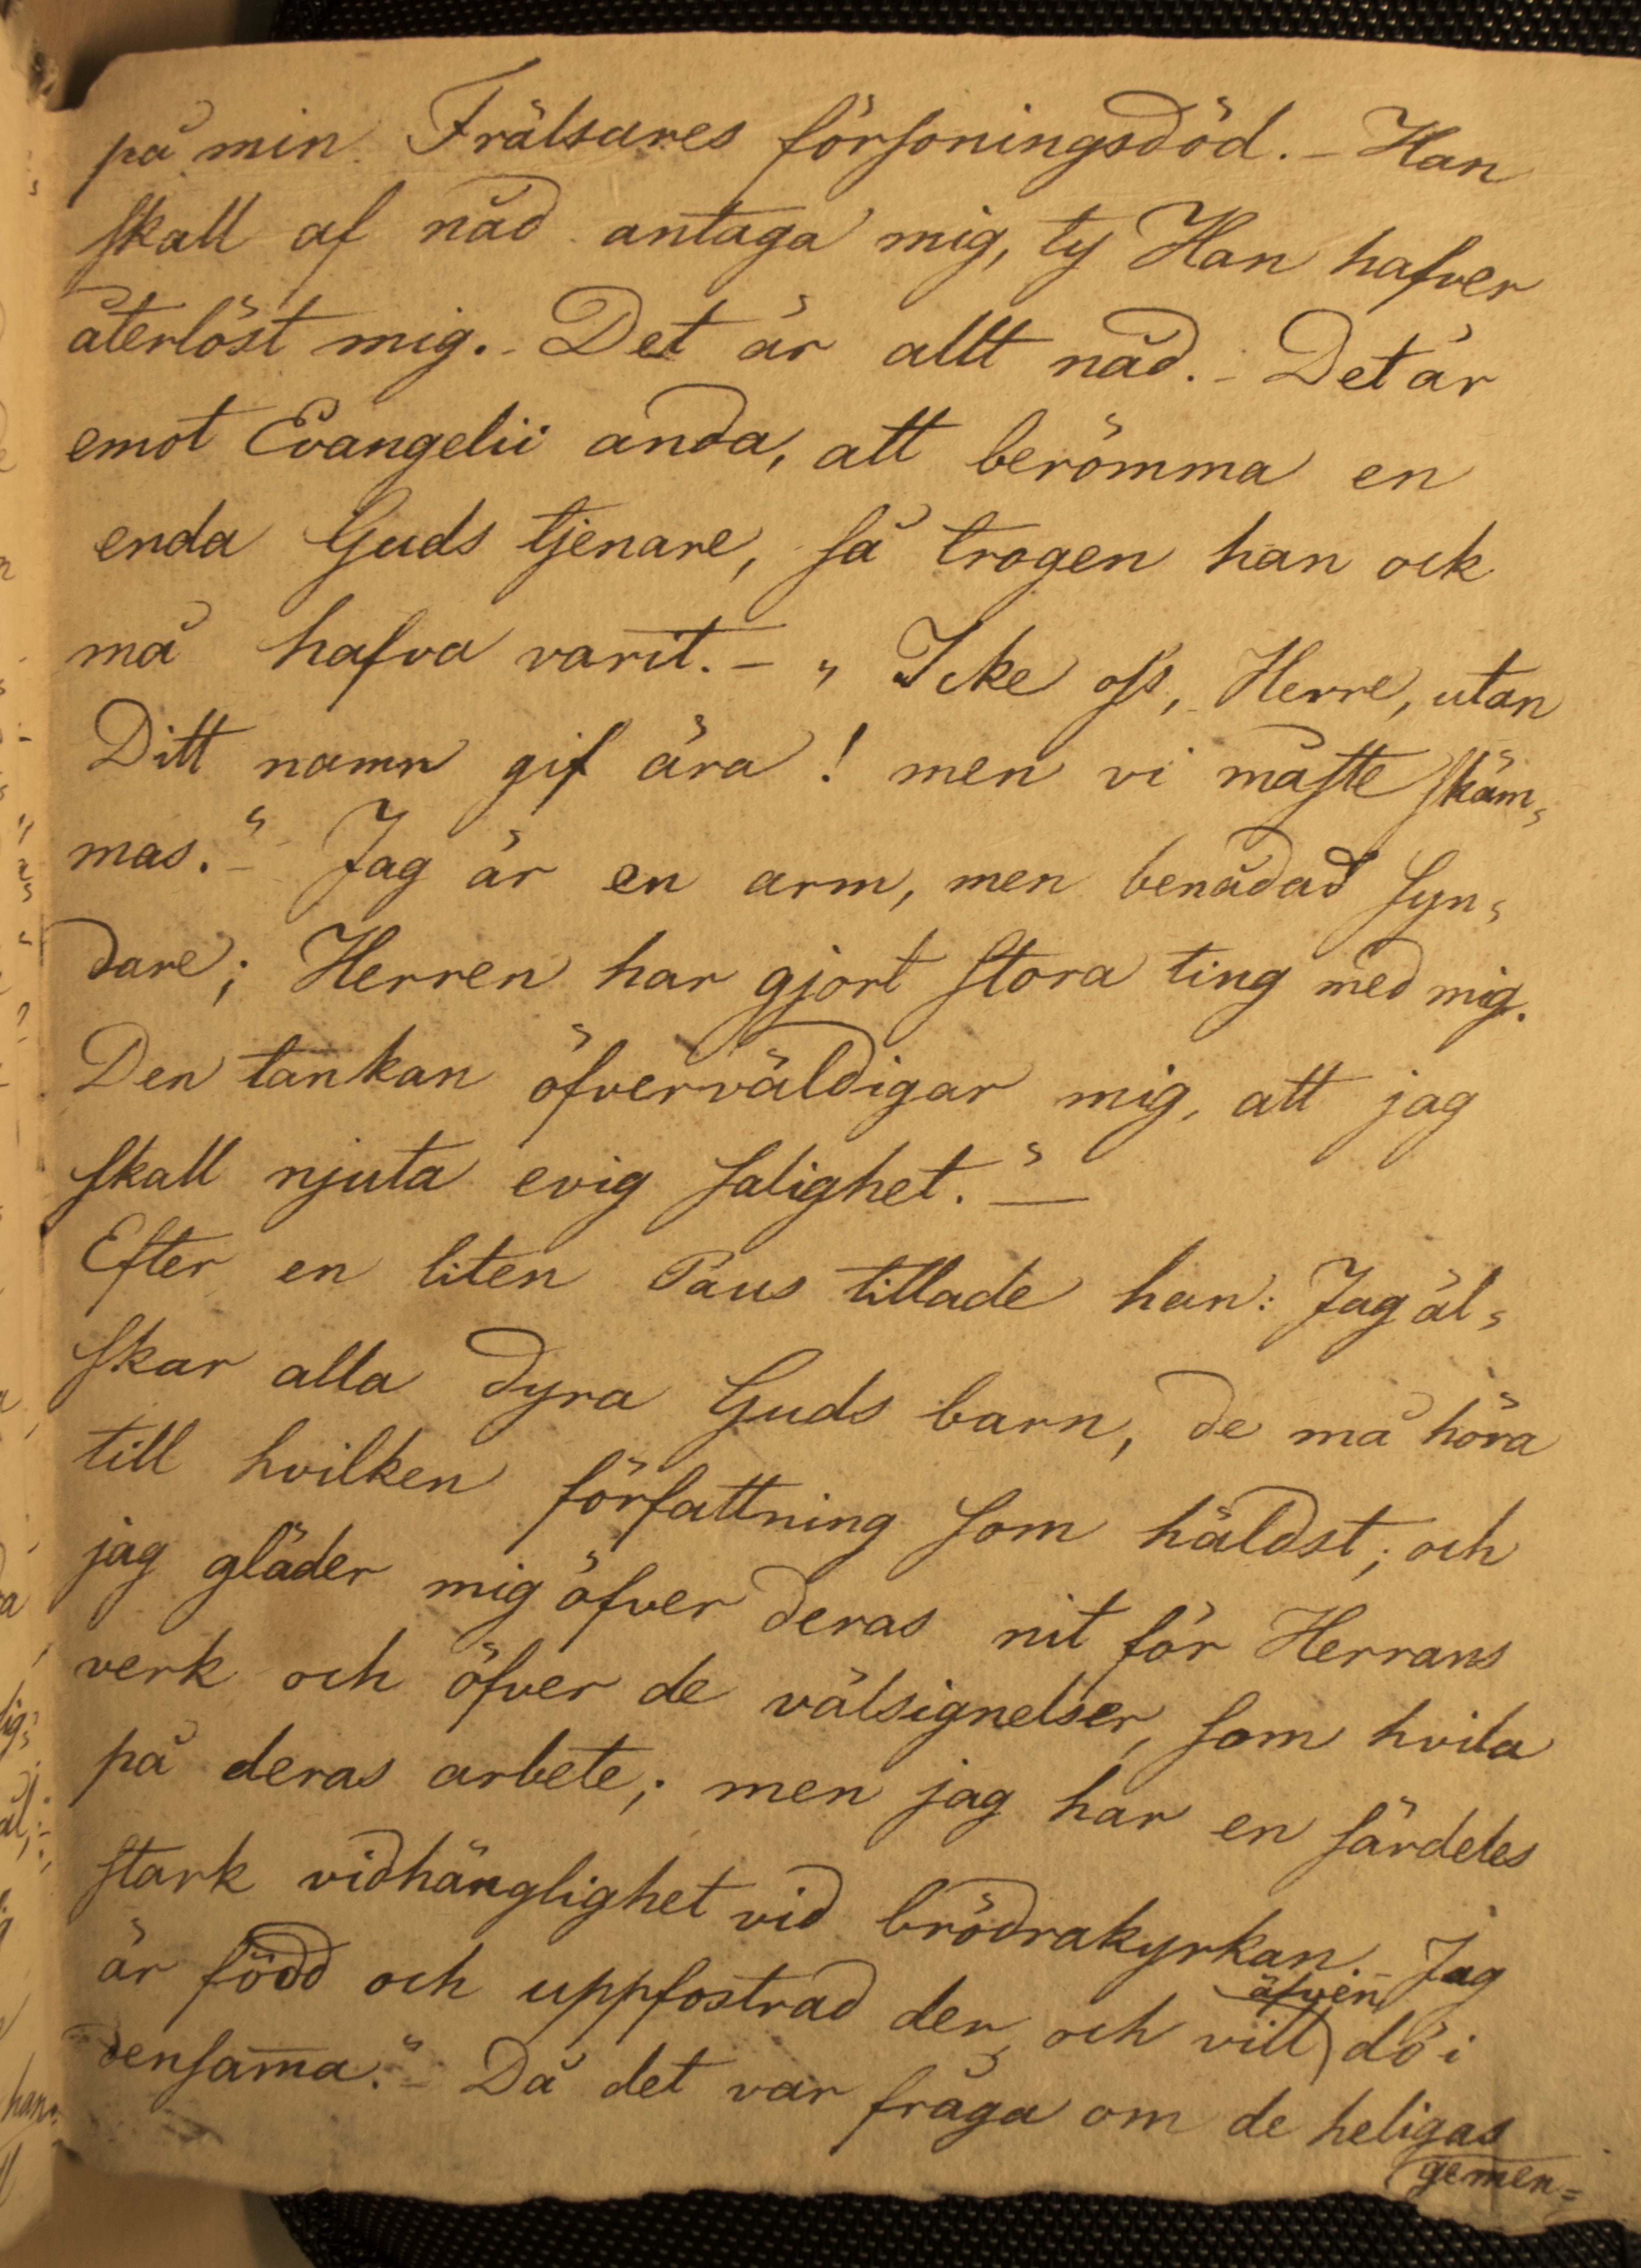 på min Frälsares försoningsdöd. – Han
skall af nåd antaga mig, ty Han hafver
återlöst mig. – Det är allt nåd. – Det är
emot Evangelii anda, att berömma en
enda Guds tjenare, så trogen han ock
må hafva varit. – „ Icke oss, Herre, utan
Ditt namn gif ära! men vi måste skäm=
mas.“ – Jag är en arm, men benådad syn=
dare; Herren har gjort stora ting med mig.
Den tankan öfverväldigar mig, att jag
skall njuta evig salighet.“ –
Efter en liten Paus tillade han: Jag äl=
skar alla dyra Guds barn, de må höra
till hvilken författning som häldst; och
jag gläder mig öfver deras nit för Herrans
verk och öfver de välsignelser, som hvila
på deras arbete; men jag har en särdeles
stark vidhänglighet vid brödrakyrkan. – Jag
är född och uppfostrad der, och vill äfven dö i
densam̅a.“ – Då det var fråga om de heligas
gemen=